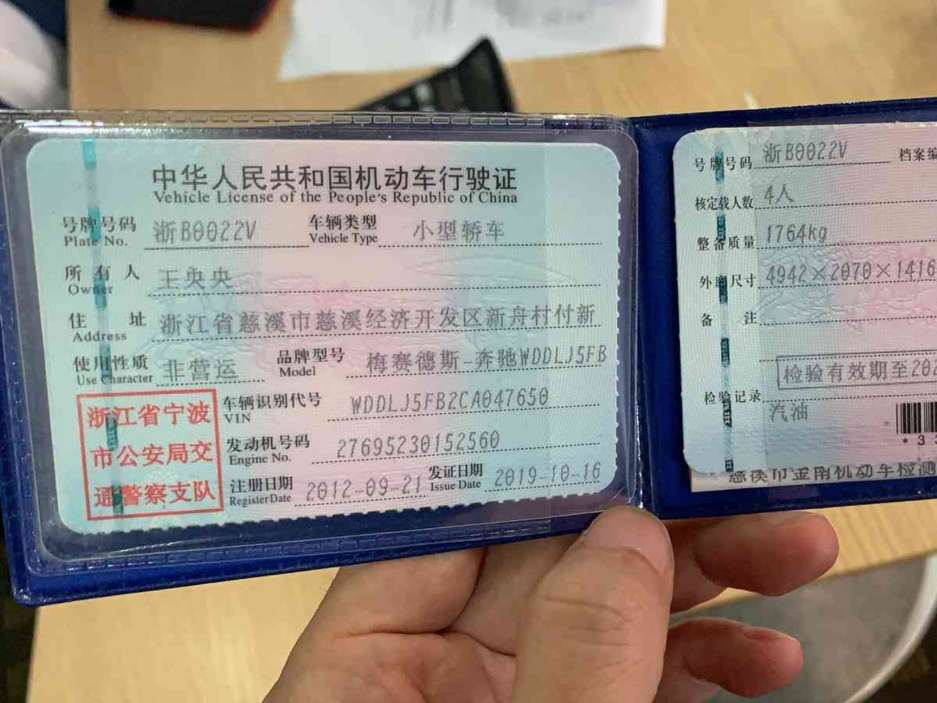 中华人民共和国机动车行驶证
Vehicle License of the People's Republic of China
号牌号码 浙B0022V 车辆类型 小型轿车
Plate No. Vehicle Type
所有人 王央央
Owner
住址 浙江省慈溪市慈溪经济开发区新舟村付新
Address
使用性质 非营运 品牌型号 梅赛德斯-奔驰WDDLJ5FB
Use Character Model
浙江省宁波
市公安局交
通警察支队
车辆识别代号 WDDLJ5FB2CA047650
VIN
发动机号码 27695230152560
Engine No.
注册日期 2012-09-21 发证日期 2019-10-16
Register Date Issue Date
号牌号码 浙B0022V 档案编
核定载人数 4人
整备质量 1764kg
外廓尺寸 4942×2070×1416
备注
检验有效期至202
检验记录
汽油
*33
慈溪市金南机动车检测